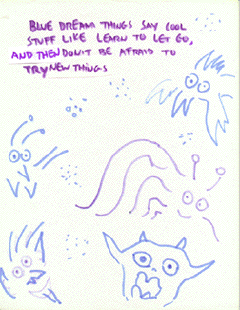 BLUE DREAM THINGS SAY COOL
STUFF LIKE LEARN TO LET GO,
AND THEN DON'T BE AFRAID TO
TRY NEW THINGS